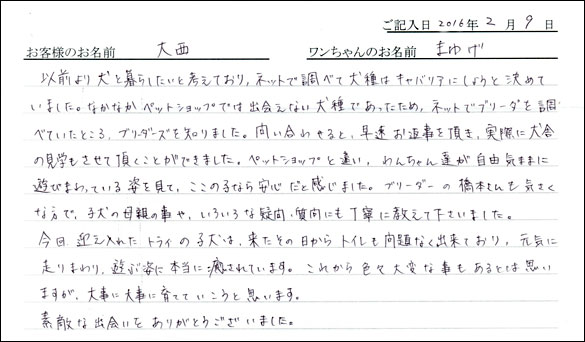 ご記入日 2016年 2 月 9 日
お客様のお名前 大西 ワンちゃんのお名前 まゆげ
以前より犬と暮らしたいと考えており、ネットで調べて犬種はキャバリアにしようと決めて
いました。なかなかペットショップでは出会えない犬種であったため、ネットでブリーダを調
べていたところ、ブリーダーズを知りました。問い合わせると、早速お返事を頂き、実際に犬舎
の見学もさせて頂くことができました。ペットショップと違い、わんちゃん達が自由気ままに
遊びまわっている姿を見て、ここの子なら安心だと感じました。ブリーダーの橋本さんも気さく
な方で、子犬の母親の事や、いろいろな疑問・質問にも丁寧に教えて下さいました。
今回迎え入れたトライの子犬は、来たその日からトイレも問題なく出来ており、元気に
走りまわり、遊ぶ姿に本当に癒されています。これから色々大変な事もあるとは思い
ますが、大事に大事に育てていこうと思います。
素敵な出会いをありがとうございました。